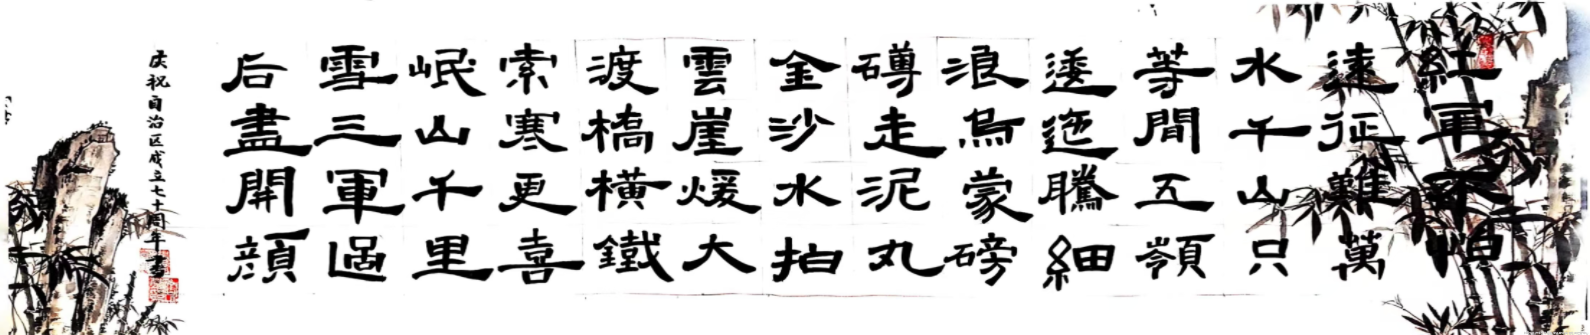 紅軍不怕
遠征難萬
水千山只
等間五嶺
逶迤騰細
浪烏蒙磅
礴走泥丸
金沙水拍
雲崖煖大
渡橋橫鐵
索寒更喜
岷山千里
雪三軍過
后盡開顏
庆祝自治区成立七十周年